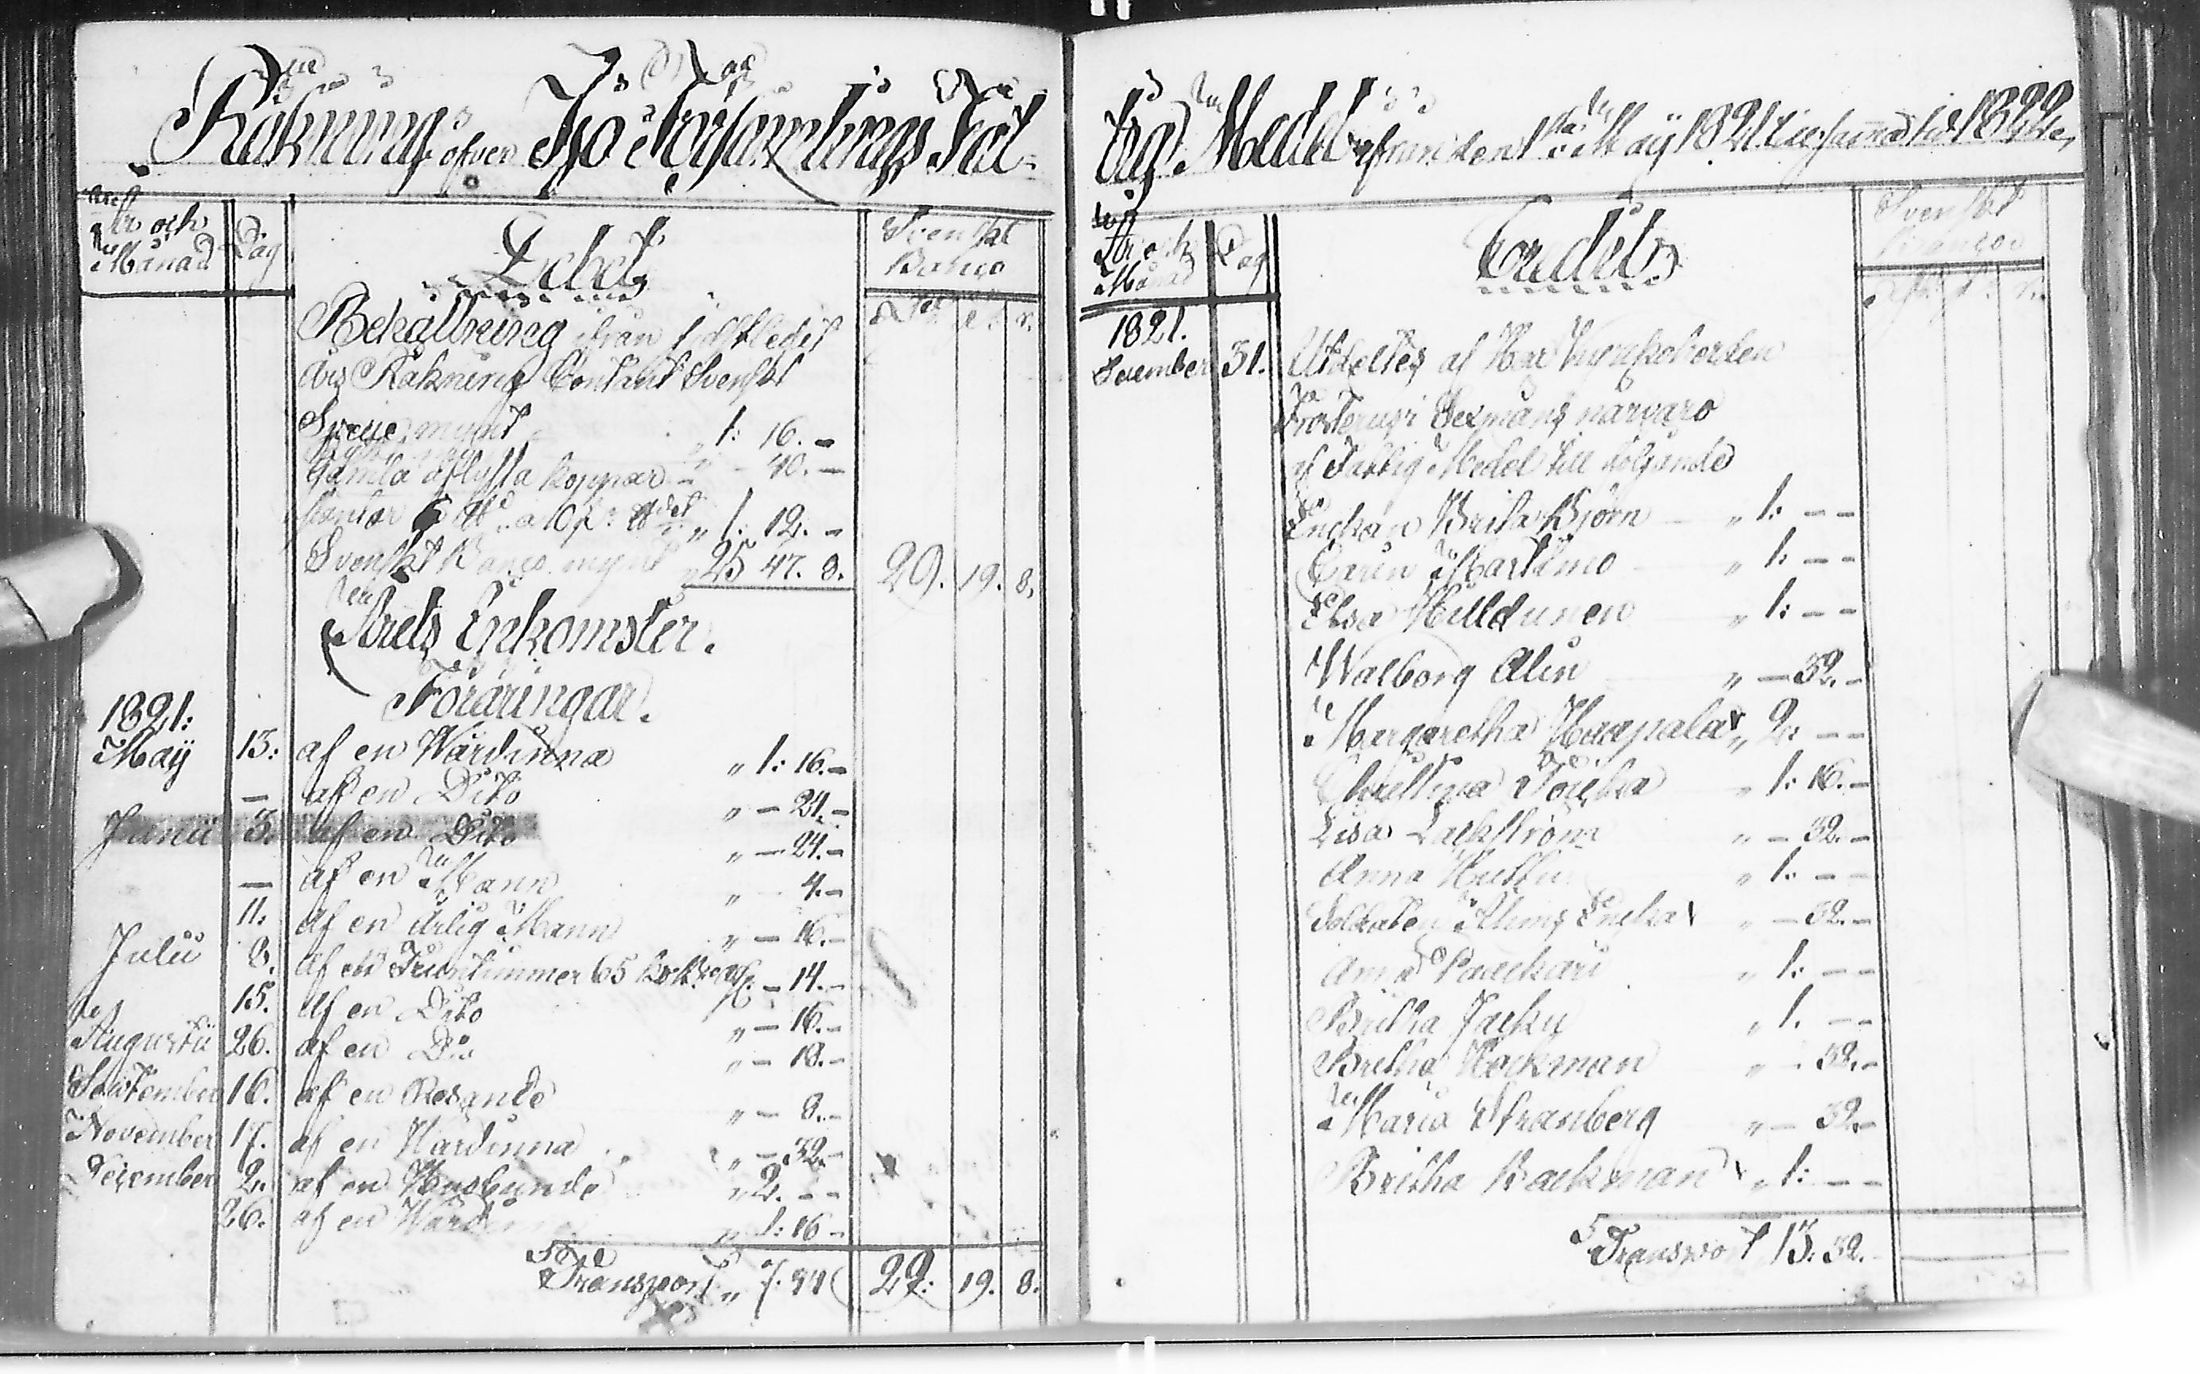 Räkning öfver Ijo Församlings Fat-
År och Månad Dag Debet Svenskt Banco
Behållning ifrån sistledit
Års Räkning Contant Svenskt
Specie mynt " 1: 16. –
Gamla aflysta koppar – " – 40. –
" 1: 12. –
Svenskt Banco mynt " 25 47. 8. 29. 19. 8.
Årets Inkomster.
Föräringar.
1821:
May 13: af en Wärdinna " 1: 16. –
– af en Dito " – 24. –
Junii 3. af en Dito " – 24. –
– af en Mann " – 4. –
11. af en ärlig Mann " – 16. –
Julii 8. af en Fruntimmer 65 – 14. –
15. af en Dito " – 16. –
Augusti 26. af en Dio " – 18. –
September 16. af en Resande " – 8. –
November 17. af en Wärdinna " – 32. –
December 2. af en Husbonde " 2. – –
26. af en Wärdinna " 1: 16 –
Transport " 7. 44 29: 19. 8.
tig Medel ifrån den 1 May 1821 till samma tid 1822.
År och Månad Dag Credit Svenskt Banco
1821.
December 31. Utdeltes af Herr Kyrkoherden
Sexmäns närvaro
af Fattig Medel till följande
Enckan Brita Björn " 1: – –
Carin Martimo " 1: – –
Elsa Killdunen " 1: – –
Walborg Alin " – 32. –
Margaretha Haapala " 2: – –
Christina " 1: 16. –
Lisa Lackström " – 32. –
Anna Huttu " 1: – –
Soldaten Alims Encka " – 32. –
Anna Paackari " 1: – –
Britha Jacku " 1. – –
Bretha Hockman " – 32. –
Maria Stranberg " – 32. –
Britha Backman " 1: – –
Transport 13: 32. –